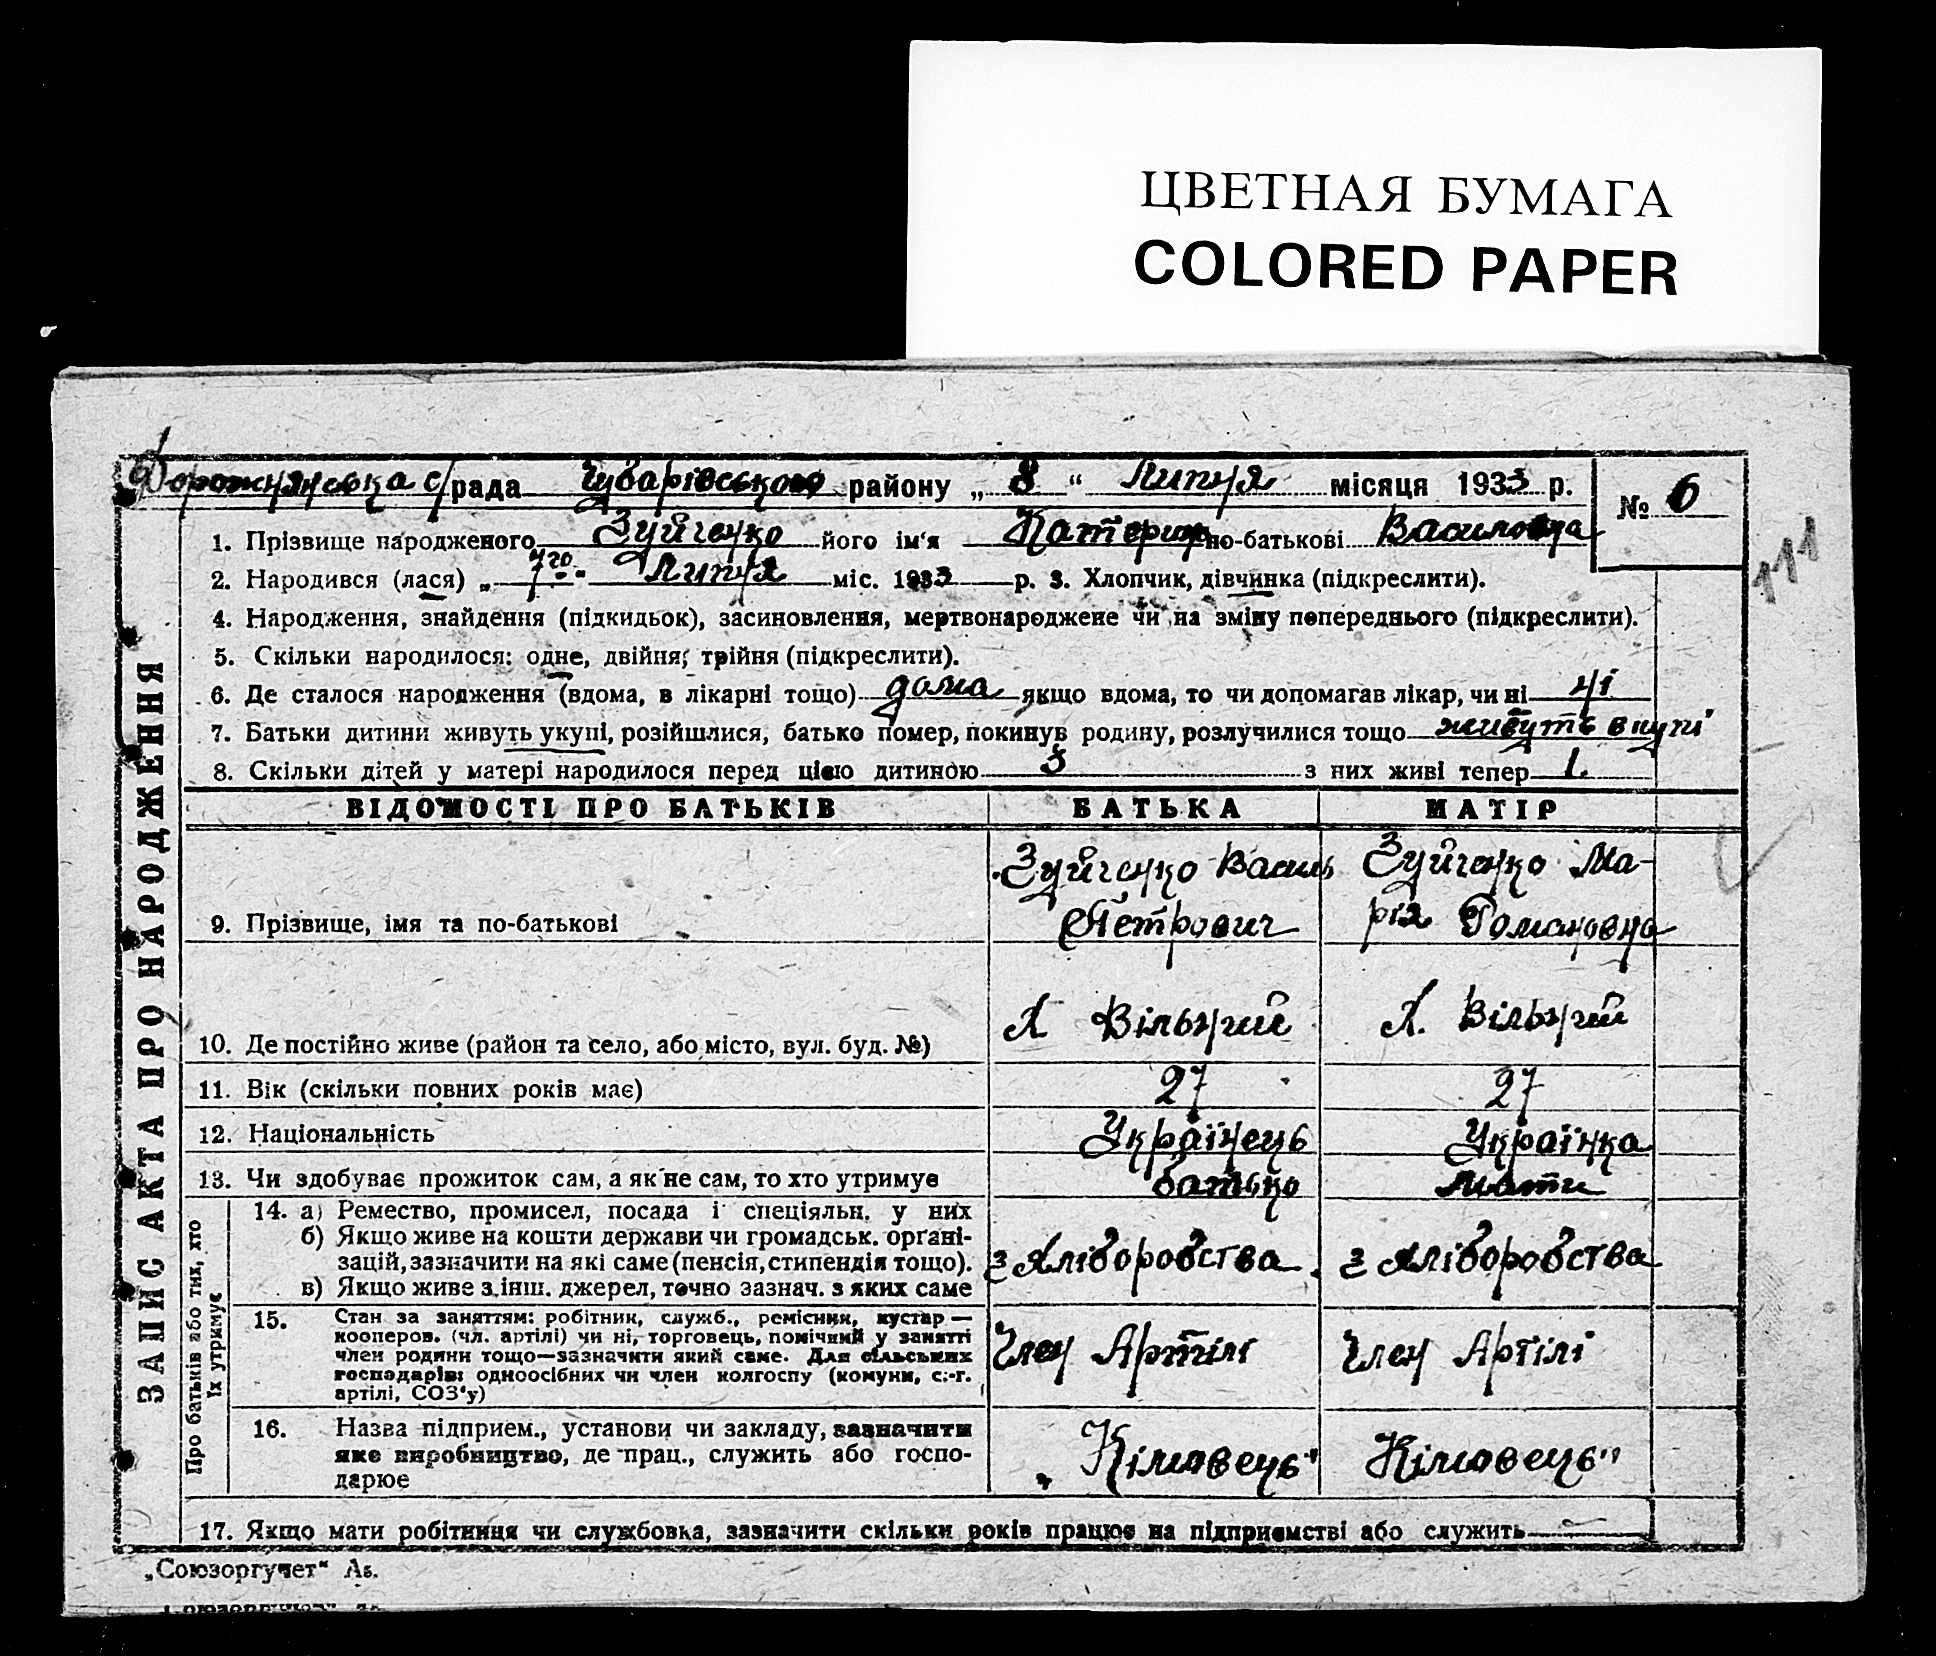 ЦВЕТНАЯ БУМАГА
COLORED PAPER
Дорожнянська с/рада Чубарівського району „ 8 “ Липня місяця 1933 р. № 6
111
1. Прізвище народженого Зуйченко його ім'я Катерина по-батькові Василовна
2. Народився (лася) „ 7го “ Липня міс. 1933 р. 3. Хлопчик, дівчинка (підкреслити).
4. Народження, знайдення (підкидьок), засиновлення, мертвонароджене чи на зміну попереднього (підкреслити).
5. Скільки народилося: одне, двійня, трійня (підкреслити).
6. Де сталося народження (вдома, в лікарні тощо) дома якщо вдома, то чи допомагав лікар, чи ні ні
7. Батьки дитини живуть укупі, розійшлися, батько помер, покинув родину, розлучилися тощо живуть вкупі
8. Скільки дітей у матері народилося перед цією дитиною 3 з них живі тепер 1.
ЗАПИС АКТА ПРО НАРОДЖЕННЯ
ВІДОМОСТІ ПРО БАТЬКІВ БАТЬКА МАТІР
Зуйченко Василь Зуйченко Ма-
9. Прізвище, імя та по-батькові Петрович рія Романовна
10. Де постійно живе (район та село, або місто, вул. буд. №) Х Вільний Х. Вільний
11. Вік (скільки повних років має) 27 27
12. Національність Українець Українка
13. Чи здобуває прожиток сам, а як не сам, то хто утримує батько мати
Про батьків або тих, хто
їх утримує
14. а) Ремество, промисел, посада і спеціяльн. у них
б) Якщо живе на кошти держави чи громадськ. органі-
зацій, зазначити на які саме (пенсія, стипендія тощо). з хліборобства з хліборобства
в) Якщо живе з інш. джерел, точно зазнач. з яких саме
15. Стан за заняттям: робітник, служб., ремісник, кустар —
кооперов. (чл. артілі) чи ні, торговець, помічний у занятті
член родини тощо—зазначити який саме. Для сільських Член Артілі Член Артілі
господарів: одноосібних чи член колгоспу (комуни, с.-г.
артілі, СОЗ'у)
16. Назва підприєм., установи чи закладу, зазначити
яке виробництво, де прац., служить або госпо- „Кімовець" Кімовець"
дарює
17. Якщо мати робітниця чи службовка, зазначити скільки років працює на підприємстві або служить —
„Союзоргучет“ Аз.